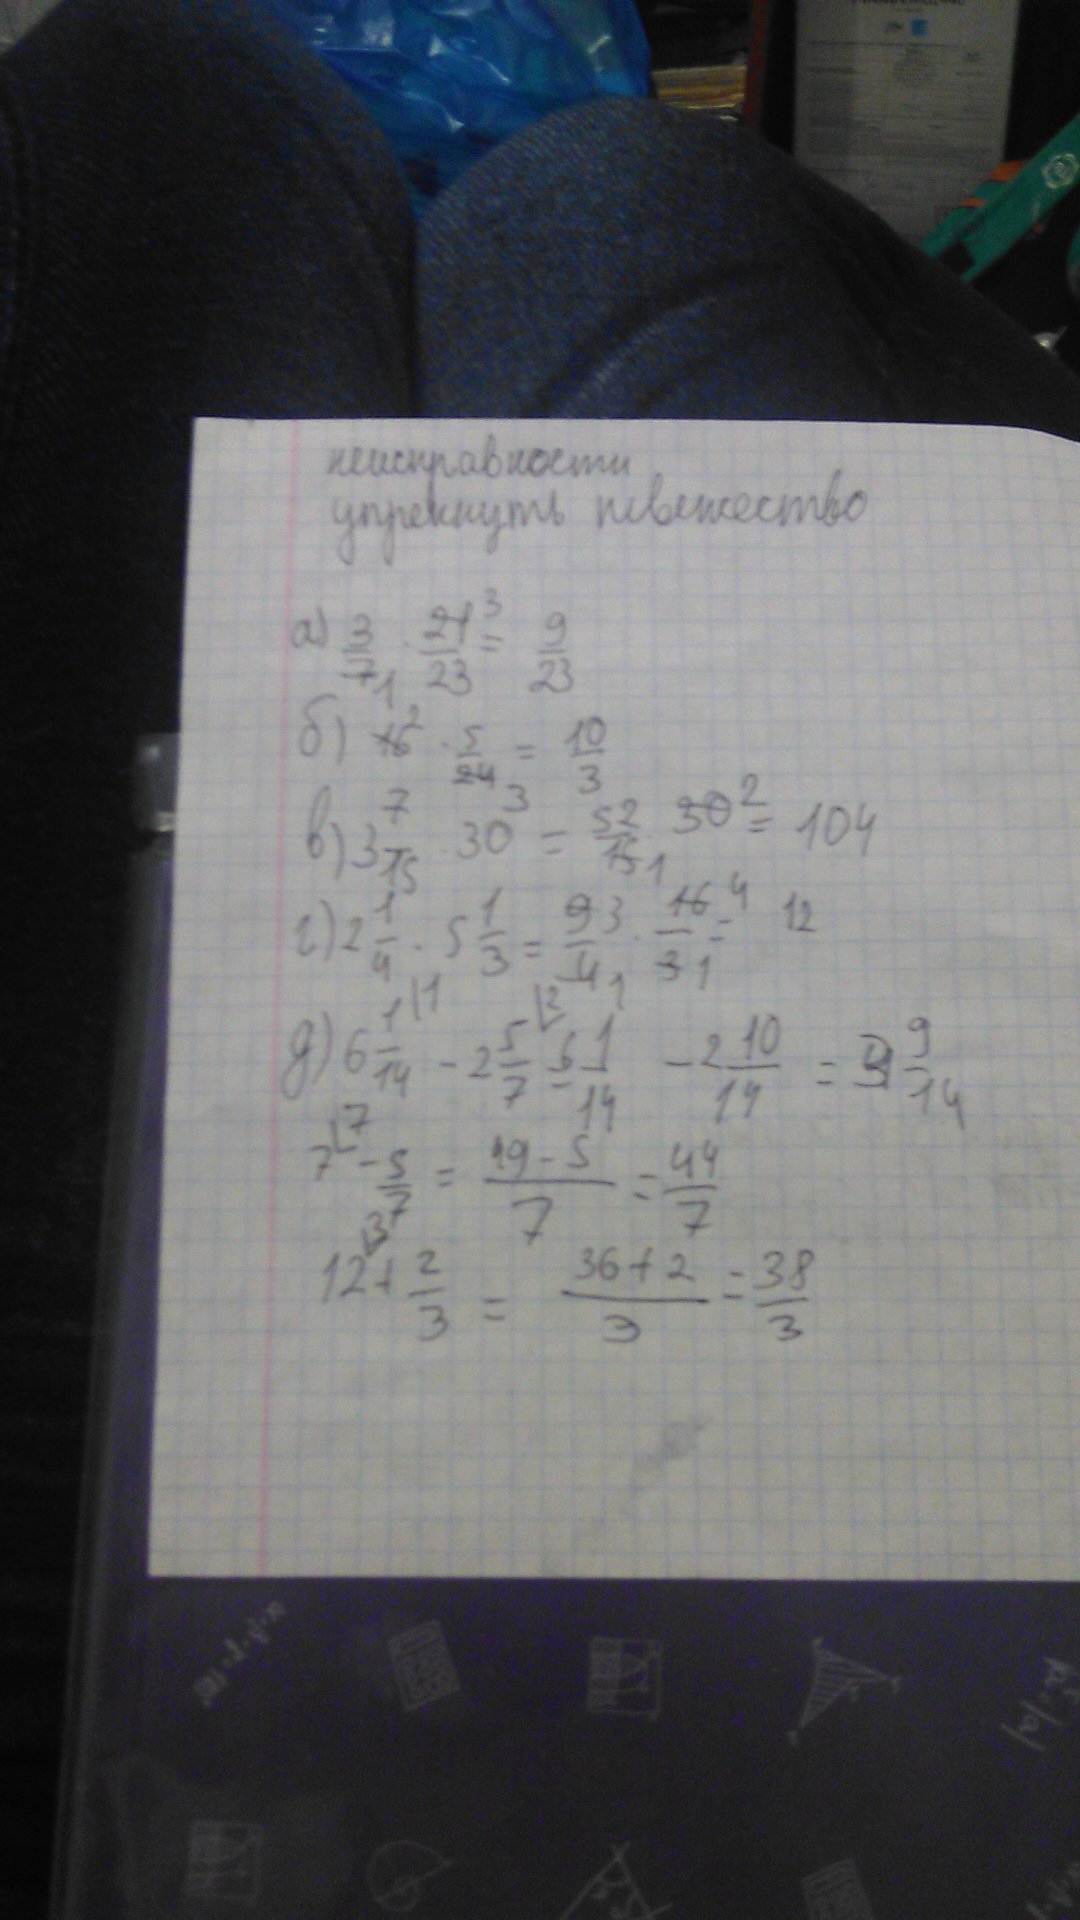 неисправности
упрекнуть невежество
а) 3/7 1 · 21/23 3 = 9/23
б) 16 2 · 5/24 3 = 10/3
в) 3 7/15 · 30 = 52/15 1 · 30 2 = 104
г) 2 1/4 · 5 1/3 = 9/4 3 1 · 16/3 4 1 = 12
д) 6 1/14 |1 - 2 5/7 |2 = 6 1/14 - 2 10/14 = 3 9/14
7 |7 - 5/7 = 49-5/7 = 44/7
12 |3 + 2/3 = 36+2/3 = 38/3